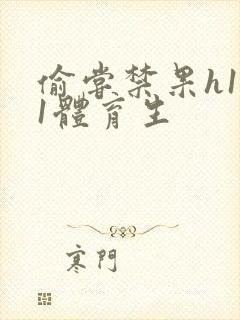 偷嘗禁果h1
1體育生
寒門